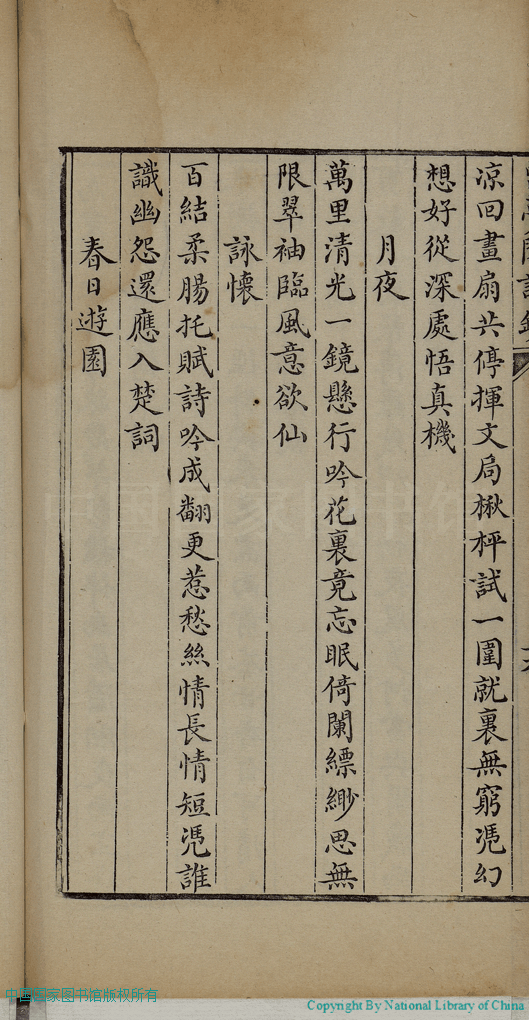 涼回畫扇共停揮文局楸枰試一圍就裏無窮凴幻
想好從深處悟真機
月夜
萬里清光一鏡懸行吟花裏竟忘眠倚闌縹緲思無
限翠袖臨風意欲仙
詠懷
百結柔腸托賦詩吟成翻更惹愁絲情長情短凴誰
識幽怨還應入楚詞
春日遊園
中国国家图书馆版权所有
Copyright By National Library of China